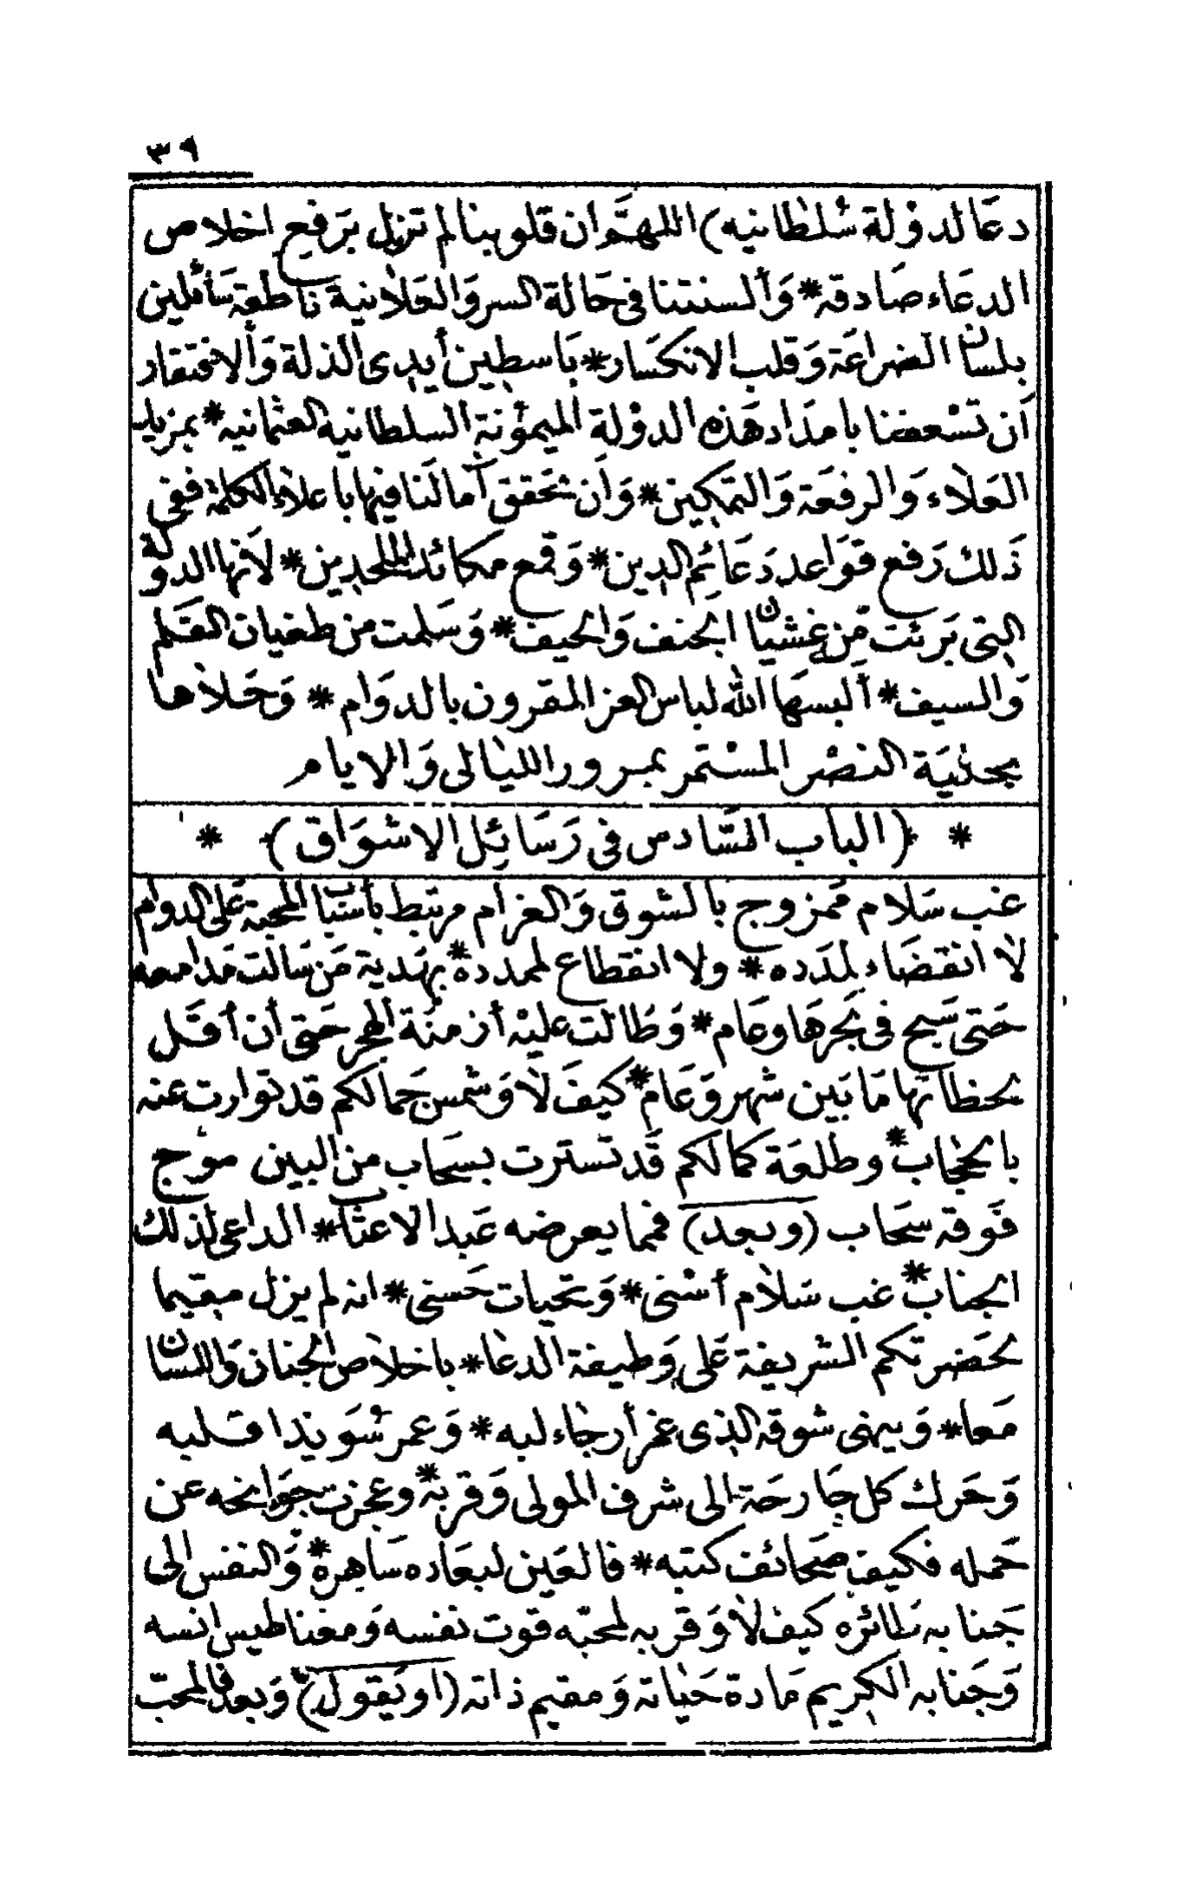 ٣٩
دعَا لدوْلة سُلطانيه) اللهمَّ ان قلوبنا لم تزل بَرفيع اخلاص
الدعَاء صَادقه * وَألسنتنا فى حَالة السر وَالعَلانية ناطقة سَائلين
بلسان الضراعَة وَقلب الانكسَار * بَاسطين أيدى الذلة وَالافتقار
أن تسْعفنا بامدَاد هَذه الدوْلة الميموُنة السلطانيه العثمانيه * بمزيد
العَلاء وَالرفعَة وَالتمكين * وَأن تحَقق آمالنَا فيها باعلاء الكلمة ففى
ذَلك رَفع قوَاعد دَعَائِم الدين * وَقمع مكائد الملحدين * لأنها الدولة
التى بَرئت مّن غشيان الجنف وَالحيف * وَسَلمت من طغيان القَلم
وَالسيف * ألبسهَا الله لباس العز المقرون بالدوَام * وَحَلاها
بحليَة النصْر المسْتمر بمرور الليالى وَالايام
* (الباب السَّادس فى رَسَائِل الاشوَاق) *
غب سَلام ممزوج بالشوق وَالغرام مرتبط بأسباب المحبة عَلى الدوام
لا انقضَاء لمدَده * ولا انقطاع لممدده * بهَدية مَن سَالت مَدامعه
حَتى سَبح فى بَحرهَا وعَام * وَطالت عليْه أزمنُة الهجر حَتى أن أقَل
لحظاتها مَا بَين شهر وَعَام * كيفَ لا وَشمس جَمالكم قد توارت عنه
بالحجاب * وطلعَة كمالكم قَد تسترت بسَحاب من البين موج
فَوقه سحَاب (وبعد) فمما يعرضه عَبد الاعتاب * الداعى لذلك
الجناب * غب سَلام أسْنى * وَتحيات حَسنى * انه لم يزل مقيما
لحَضرتكم الشريفة عَلى وَظيفة الدعَاء * باخلاص الجنان وَاللسان
مَعا * وَينهى شوقه الذى غمر أرجاء لبه * وَعمر سُوَيدا قلبه
وَحَرك كل جَارحَة الى شرف المولى وَقربه * وعجزت جوَانحه عن
حَمله فكيف صَحائف كتبه * فالعَين لبعَاده سَاهرة * وَالنفس الى
جَنابه طائره كيف لا وَقربه لمحبّه قوت نفسه وَمغناطيس انسه
وَجَنابه الكريم مَادة حَياته وَمقيم ذاته (او يَقول) وَبعد فالمحبّ